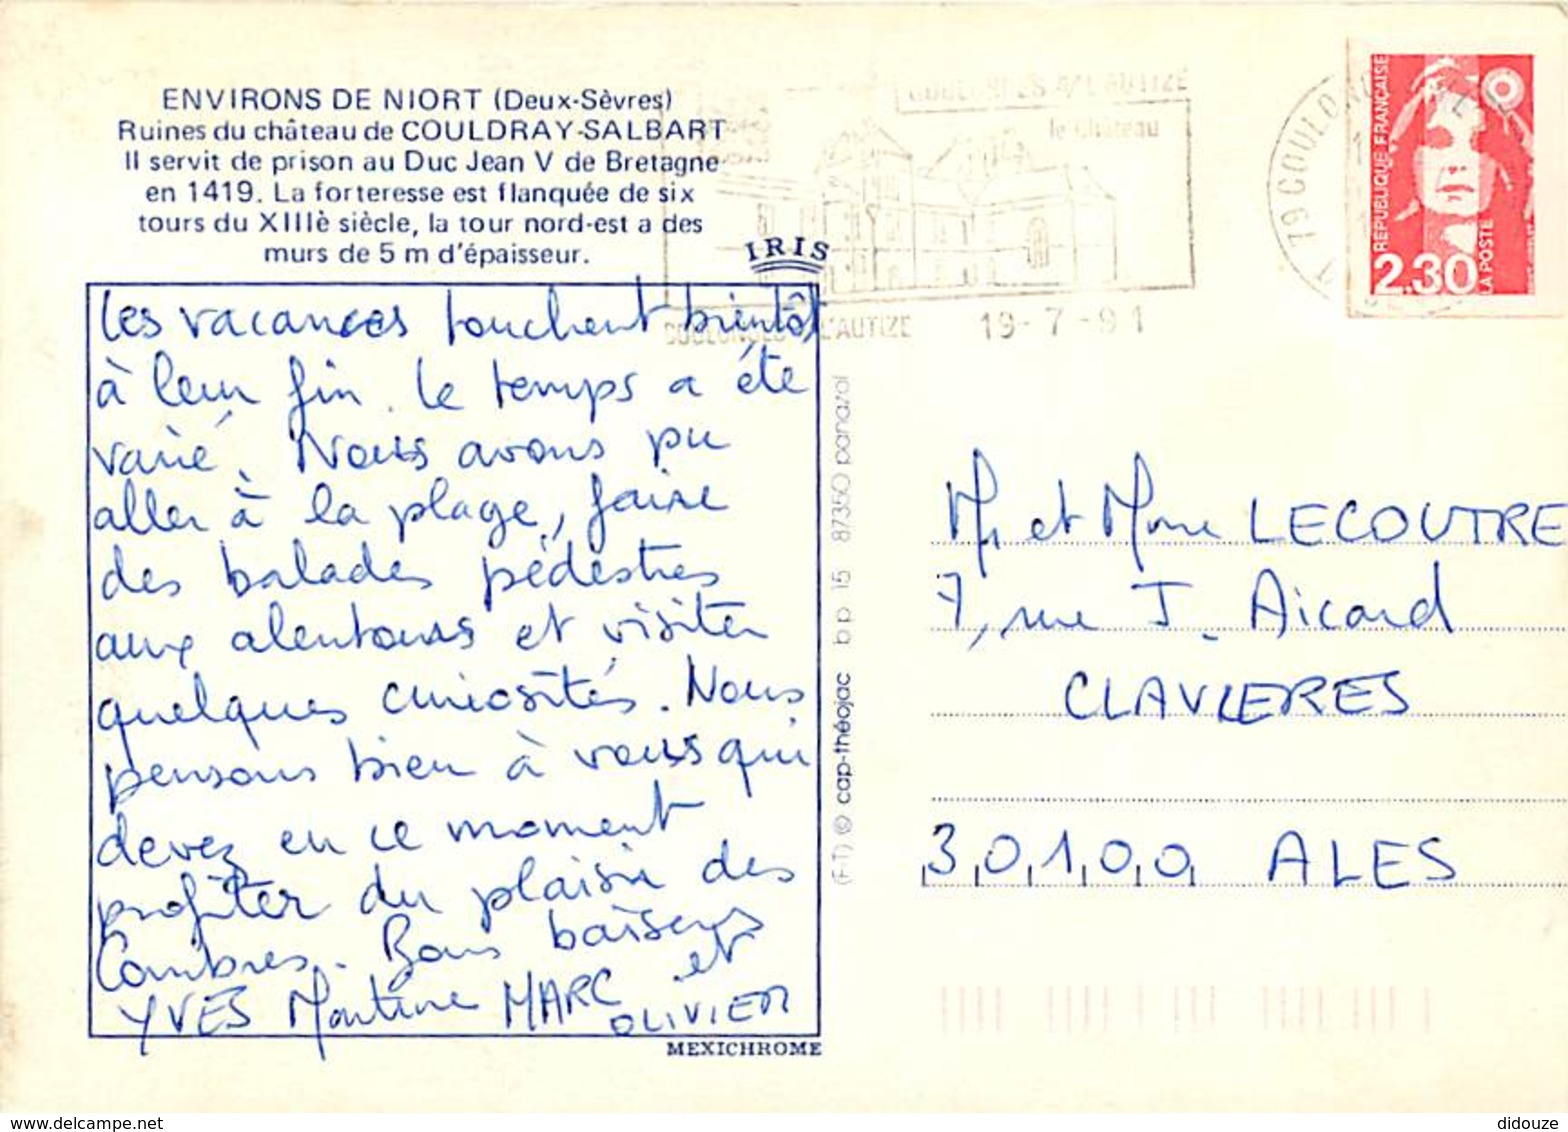 ENVIRONS DE NIORT (Deux-Sèvres)
Ruines du château de COULDRAY-SALBART
Il servit de prison au Duc Jean V de Bretagne
en 1419. La forteresse est flanquée de six
tours du XIIIè siècle, la tour nord-est a des
murs de 5 m d'épaisseur.
IRIS
Les vacances touchent bientôt
à leur fin. Le temps a été
varié. Nous avons pu
aller à la plage, faire
des balades pédestres
aux alentours et visiter
quelques curiosités. Nous
pensons bien à vous qui
devez en ce moment
profiter du plaisir des
Combres. Bons baisers
YVES Martine MARC et
OLIVIER
MEXICHROME
(F-T) © cap-théojac bp 15 87350 panazol
COULONGES S/L'AUTIZE
le château
COULONGES L'AUTIZE
19-7-91
79 COULONG
REPUBLIQUE FRANÇAISE
2.30
LA POSTE
Mr et Mme LECOUTRE
7, rue J. Aicard
CLAVIERES
30100 ALES
didouze